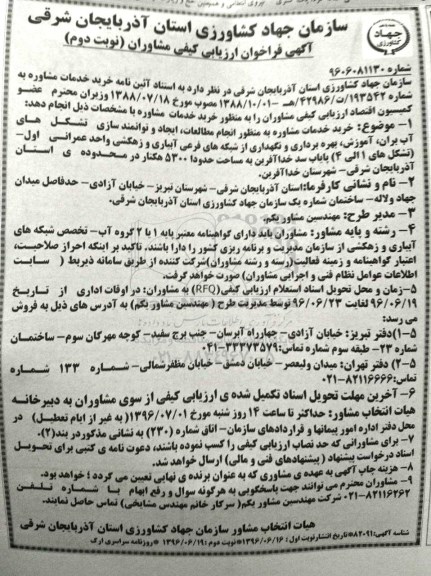 سازمان جهاد کشاورزی استان آذربایجان شرقی
آگهی فراخوان ارزیابی کیفی مشاوران (نوبت دوم)
جهاد
کشاورزی
شماره ۹۶۰۶۰۸۱۱۳۰
سازمان جهاد کشاورزی استان آذربایجان شرقی در نظر دارد به استناد آئین نامه خرید خدمات مشاوره به
شماره ۱۹۳۵۴۲/ت/۴۲۹۸۶هـ - ۱۳۸۸/۱۰/۰۱ مصوب مورخ ۱۳۸۸/۰۷/۱۸ وزیران محترم عضو
کمیسیون اقتصاد ارزیابی کیفی مشاوران را به منظور خرید خدمات مشاوره با مشخصات ذیل انجام دهد:
۱- موضوع: خرید خدمات مشاوره به منظور انجام مطالعات، ایجاد و توانمند سازی تشکل های
آب بران، آموزش، بهره برداری و نگهداری از شبکه های فرعی آبیاری و زهکشی واحد عمرانی اول-
(تشکل های ۱ الی ۴) پایاب سد خداآفرین به مساحت حدودا ۵۳۰۰ هکتار در محدوده ی استان
آذربایجان شرقی- شهرستان خداآفرین.
۲- نام و نشانی کارفرما: استان آذربایجان شرقی- شهرستان تبریز- خیابان آزادی- حدفاصل میدان
جهاد و لاله- ساختمان شماره یک سازمان جهاد کشاورزی استان آذربایجان شرقی.
۳- مدیر طرح: مهندسین مشاور یکم.
۴- رشته و پایه مشاور: مشاوران باید دارای گواهینامه معتبر پایه ۱ یا ۲ گروه آب- تخصص شبکه های
آبیاری و زهکشی از سازمان مدیریت و برنامه ریزی کشور را دارا باشند. تاکید بر اینکه احراز صلاحیت،
اعتبار گواهینامه و زمینه فعالیت(رسته و رشته مشاوران)شرکت کننده از طریق سامانه ذیربط ( سایت
اطلاعات عوامل نظام فنی و اجرایی مشاوران) صورت خواهد گرفت.
۵- زمان و محل تحویل اسناد استعلام ارزیابی کیفی(RFQ) به مشاوران: در اوقات اداری از تاریخ
۹۶/۰۶/۱۹ لغایت ۹۶/۰۶/۲۳ توسط مدیریت طرح ( مهندسین مشاور یکم) به آدرس های ذیل به فروش
می رسد:
۵-۱) دفتر تبریز: خیابان آزادی- چهارراه آبرسان- جنب برج سفید- کوچه مهرگان سوم- ساختمان
شماره ۲۳- طبقه سوم شماره تماس:۳۳۳۷۳۵۷۹-۰۴۱
۵-۲) دفتر تهران: میدان ولیعصر- خیابان دمشق- خیابان مظفرشمالی- شماره ۱۳۳ شماره
تماس:۸۲۱۱۶۶۶۶-۰۲۱
۶- آخرین مهلت تحویل اسناد تکمیل شده ی ارزیابی کیفی از سوی مشاوران به دبیرخانه
هیات انتخاب مشاور: حداکثر تا ساعت ۱۴ روز شنبه مورخ ۱۳۹۶/۰۷/۰۱( به غیر از ایام تعطیل) در
محل دفتر اداره امور پیمانها و قراردادهای سازمان- اتاق شماره (۲۳۰) به نشانی مذکور در بند(۲).
۷- برای مشاورانی که حد نصاب ارزیابی کیفی را کسب نموده باشند، دعوت نامه ی کتبی برای تحویل
اسناد درخواست پیشنهاد ( پیشنهادهای فنی و مالی) ارسال خواهد شد.
۸- هزینه چاپ آگهی به عهده ی مشاوری که به عنوان برنده ی نهایی تعیین می گردد ؛ خواهد بود.
۹- مشاوران محترم می توانند جهت پاسخگویی به هرگونه سوال و رفع ابهام با شماره تلفن
۸۲۱۱۶۲۶۲-۰۲۱ شرکت مهندسین مشاور یکم( سرکار خانم مهندس مشایخی) تماس حاصل نمایند.
هیات انتخاب مشاور سازمان جهاد کشاورزی استان آذربایجان شرقی
شناسه آگهی:۸۲۰۹۱*تاریخ انتشارنوبت اول: ۱۳۹۶/۰۶/۱۶ *نوبت دوم :۱۳۹۶/۰۶/۱۹ *روزنامه سراسری ارک